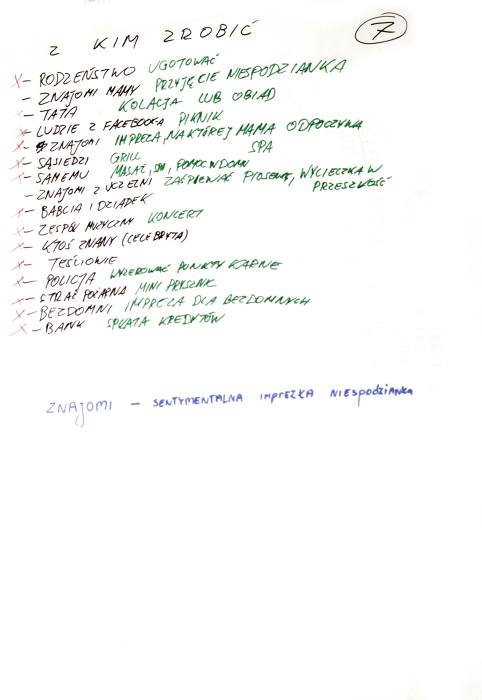 7
Z KIM ZROBIĆ
X – RODZEŃSTWO UGOTOWAĆ
– ZNAJOMI MAMY PRZYJĘCIE NIESPODZIANKA
X – TATA KOLACJA LUB OBIAD
X – LUDZIE Z FACEBOOKA PIKNIK
X – ZNAJOMI IMPREZA, NA KTÓREJ MAMA ODPOCZYWA
X – SĄSIEDZI GRILL SPA
X – SAMEMU MASAŻ, POMOC W DOMU
– ZNAJOMI Z UCZELNI ZAŚPIEWAĆ PIOSENKĘ, WYCIECZKA W PRZESZŁOŚĆ
X – BABCIA I DZIADEK
X – ZESPÓŁ MUZYCZNY KONCERT
X – KTOŚ ZNANY (CELEBRYTA)
X – TEŚCIOWIE
X – POLICJA WYZEROWAĆ PUNKTY KARNE
X – STRAŻ POŻARNA MINI PRYSZNIC
X – BEZDOMNI IMPREZA DLA BEZDOMNYCH
X – BANK SPŁATA KREDYTÓW
ZNAJOMI – SENTYMENTALNA IMPREZKA NIESPODZIANKA